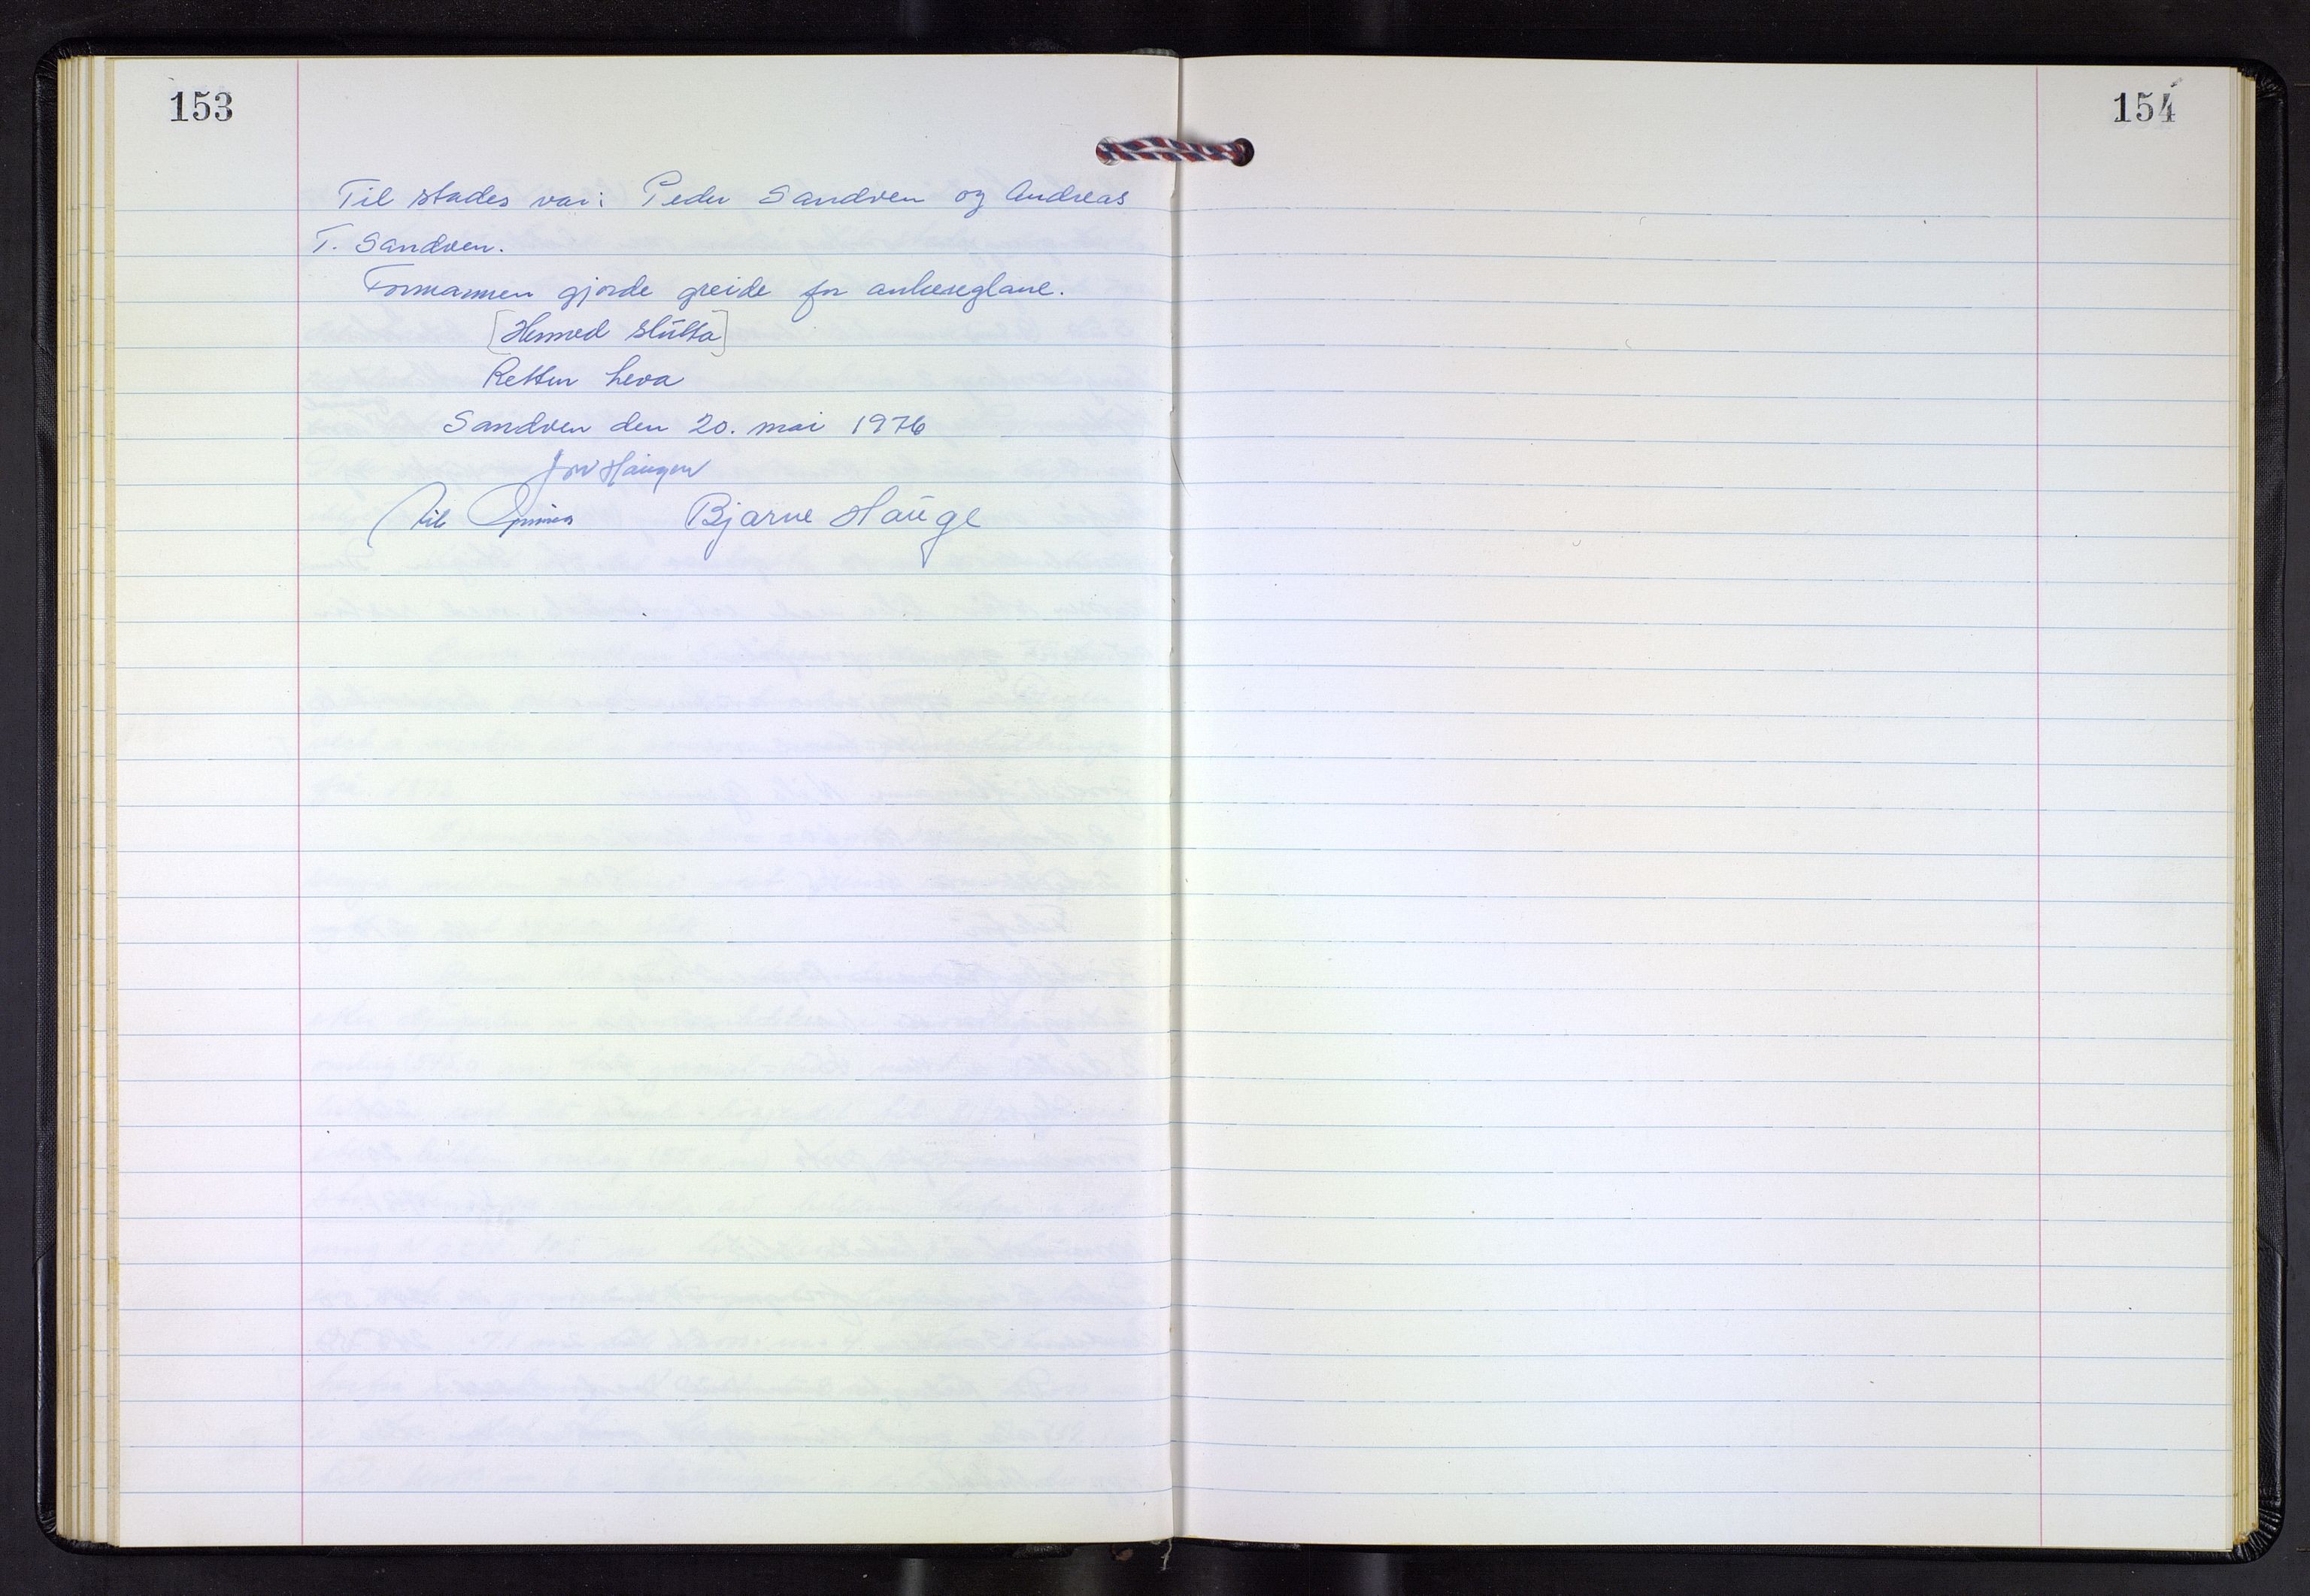 153
154
Til stades var: Peder Sandven og Andreas
T. Sandven.
Formannen gjorde greide for ankereglane.
[Hermed slutta]
Retten heva
Sandven den 20. mai 1976
Jon Haugen
Nils
Bjarne Hauge